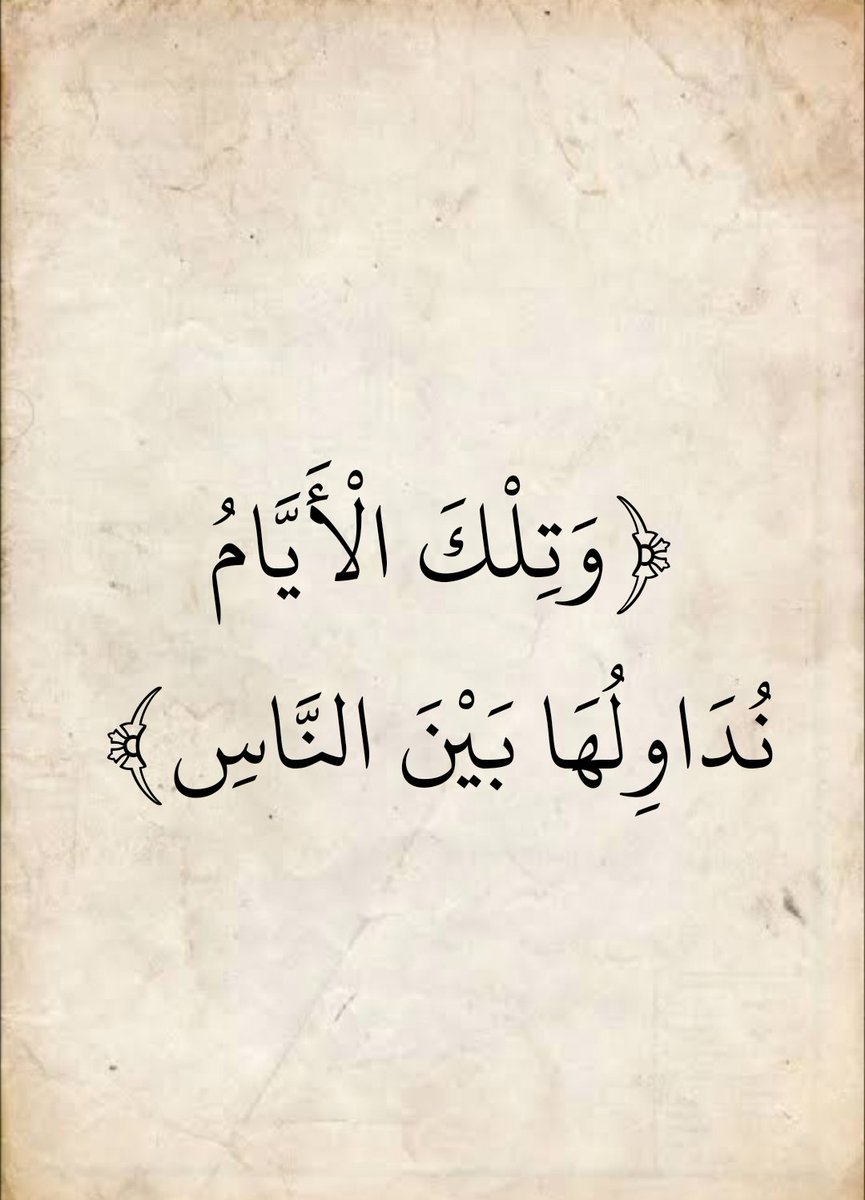 ﴿وَتِلْكَ الْأَيَّامُ
نُدَاوِلُهَا بَيْنَ النَّاسِ﴾